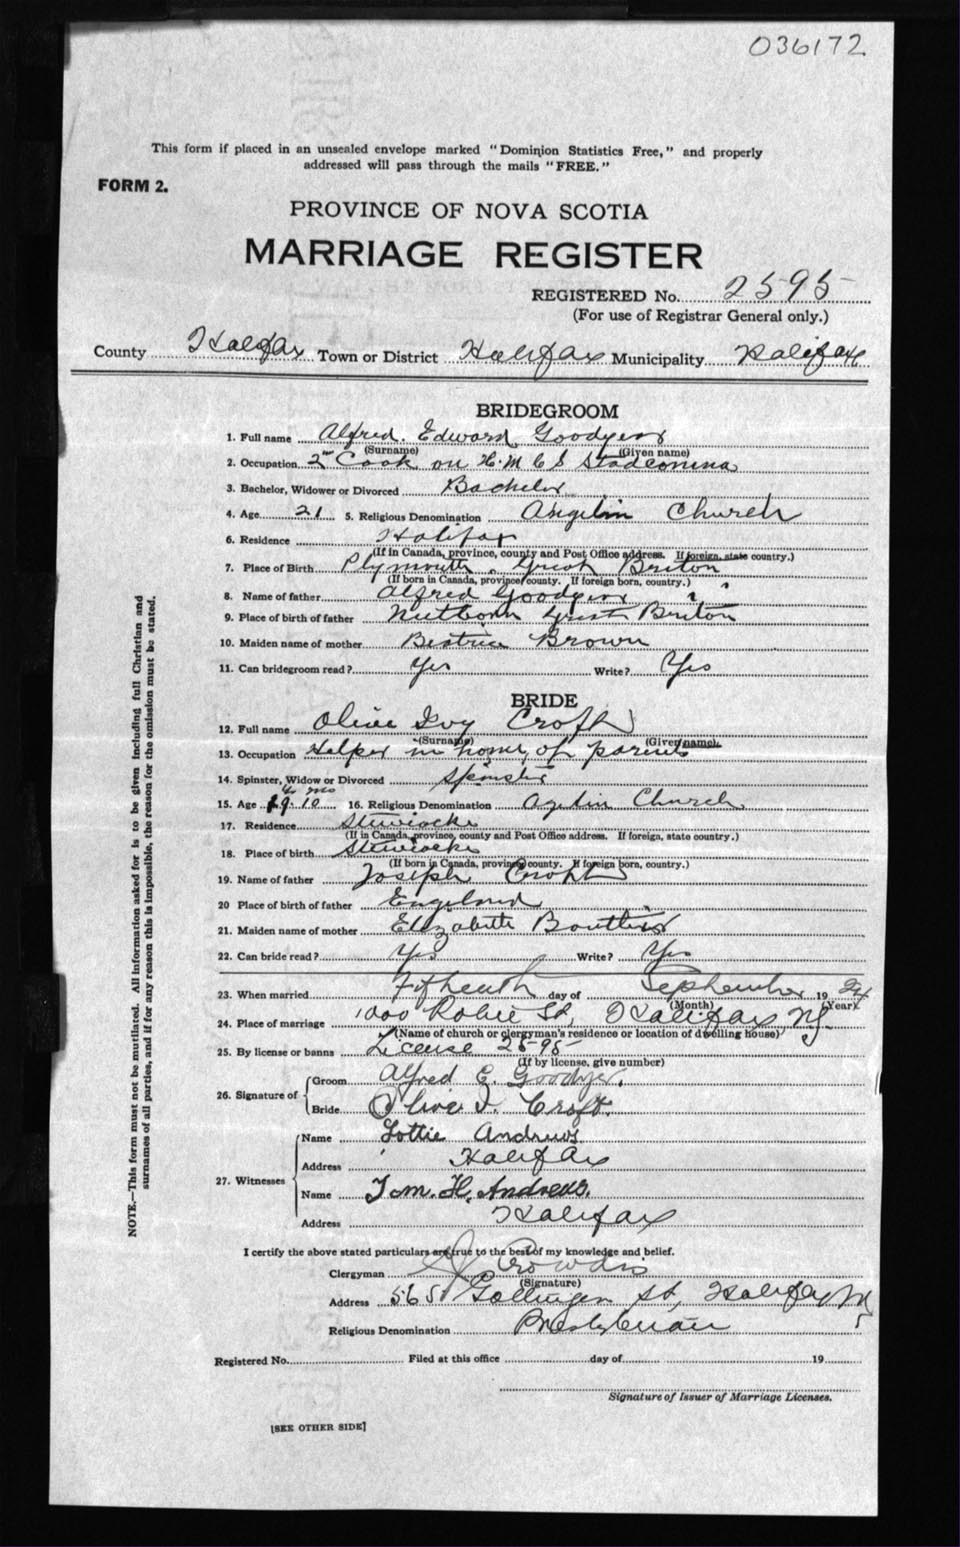 036172
This form if placed in an unsealed envelope marked "Dominion Statistics Free," and properly
addressed will pass through the mails "FREE."
FORM 2.
PROVINCE OF NOVA SCOTIA
MARRIAGE REGISTER
REGISTERED No. 2595
(For use of Registrar General only.)
County Halifax Town or District Halifax Municipality Halifax
BRIDEGROOM
1. Full name Alfred. Edward Goodyear
(Surname) (Given name)
2. Occupation 2nd Cook on H.M.C.S Stadconina
3. Bachelor, Widower or Divorced Bachelor
4. Age 21 5. Religious Denomination Anglin Church
6. Residence Halifax
(If in Canada, province, county and Post Office address. If foreign, state country.)
7. Place of Birth Plymouth, Great Briton
(If born in Canada, province, county. If foreign born, country.)
8. Name of father Alfred Goodyear
9. Place of birth of father Great Briton
10. Maiden name of mother Beatrice Brown
11. Can bridegroom read? Yes Write? Yes
BRIDE
12. Full name Olive Ivy Croft
(Surname) (Given name).
13. Occupation Helper in home of parents
14. Spinster, Widow or Divorced Spinster
15. Age 19. 10 mo 16. Religious Denomination Aglin Church
17. Residence Stewiacke
(If in Canada, province, county and Post Office address. If foreign, state country.)
18. Place of birth Stewiacke
(If born in Canada, province, county. If foreign born, country.)
19. Name of father Joseph Croft
20 Place of birth of father England
21. Maiden name of mother Elizabeth Boutlier
22. Can bride read? Yes Write? Yes
23. When married Fifteenth day of September 19 24
(Month) (Year)
24. Place of marriage 1000 Robie St, Halifax NS
(Name of church or clergyman's residence or location of dwelling house)
25. By license or banns License 2595
(If by license, give number)
26. Signature of Groom Alfred E. Goodyer.
Bride Olive I. Croft.
27. Witnesses
Name Lottie Andrews
Address Halifax
Name Tom. H. Andrews.
Address Halifax
I certify the above stated particulars are true to the best of my knowledge and belief.
Clergyman Crowdis
(Signature)
Address 565 Gottingen St, Halifax NS
Religious Denomination Presbyterian
Registered No. Filed at this office day of 19
Signature of Issuer of Marriage Licenses.
[SEE OTHER SIDE]
NOTE.—This form must not be mutilated. All information asked for is to be given including full Christian and
surnames of all parties, and if for any reason this is impossible, the reason for the omission must be stated.